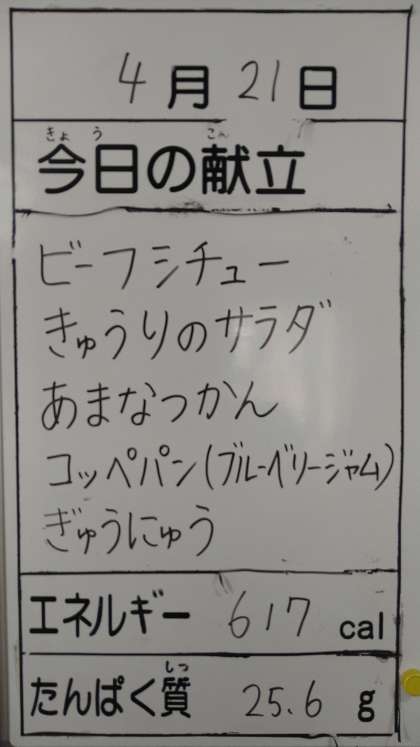 4月21日
今日の献立
ビーフシチュー
きゅうりのサラダ
あまなつかん
コッペパン(ブルーベリージャム)
ぎゅうにゅう
エネルギー 617 cal
たんぱく質 25.6 g